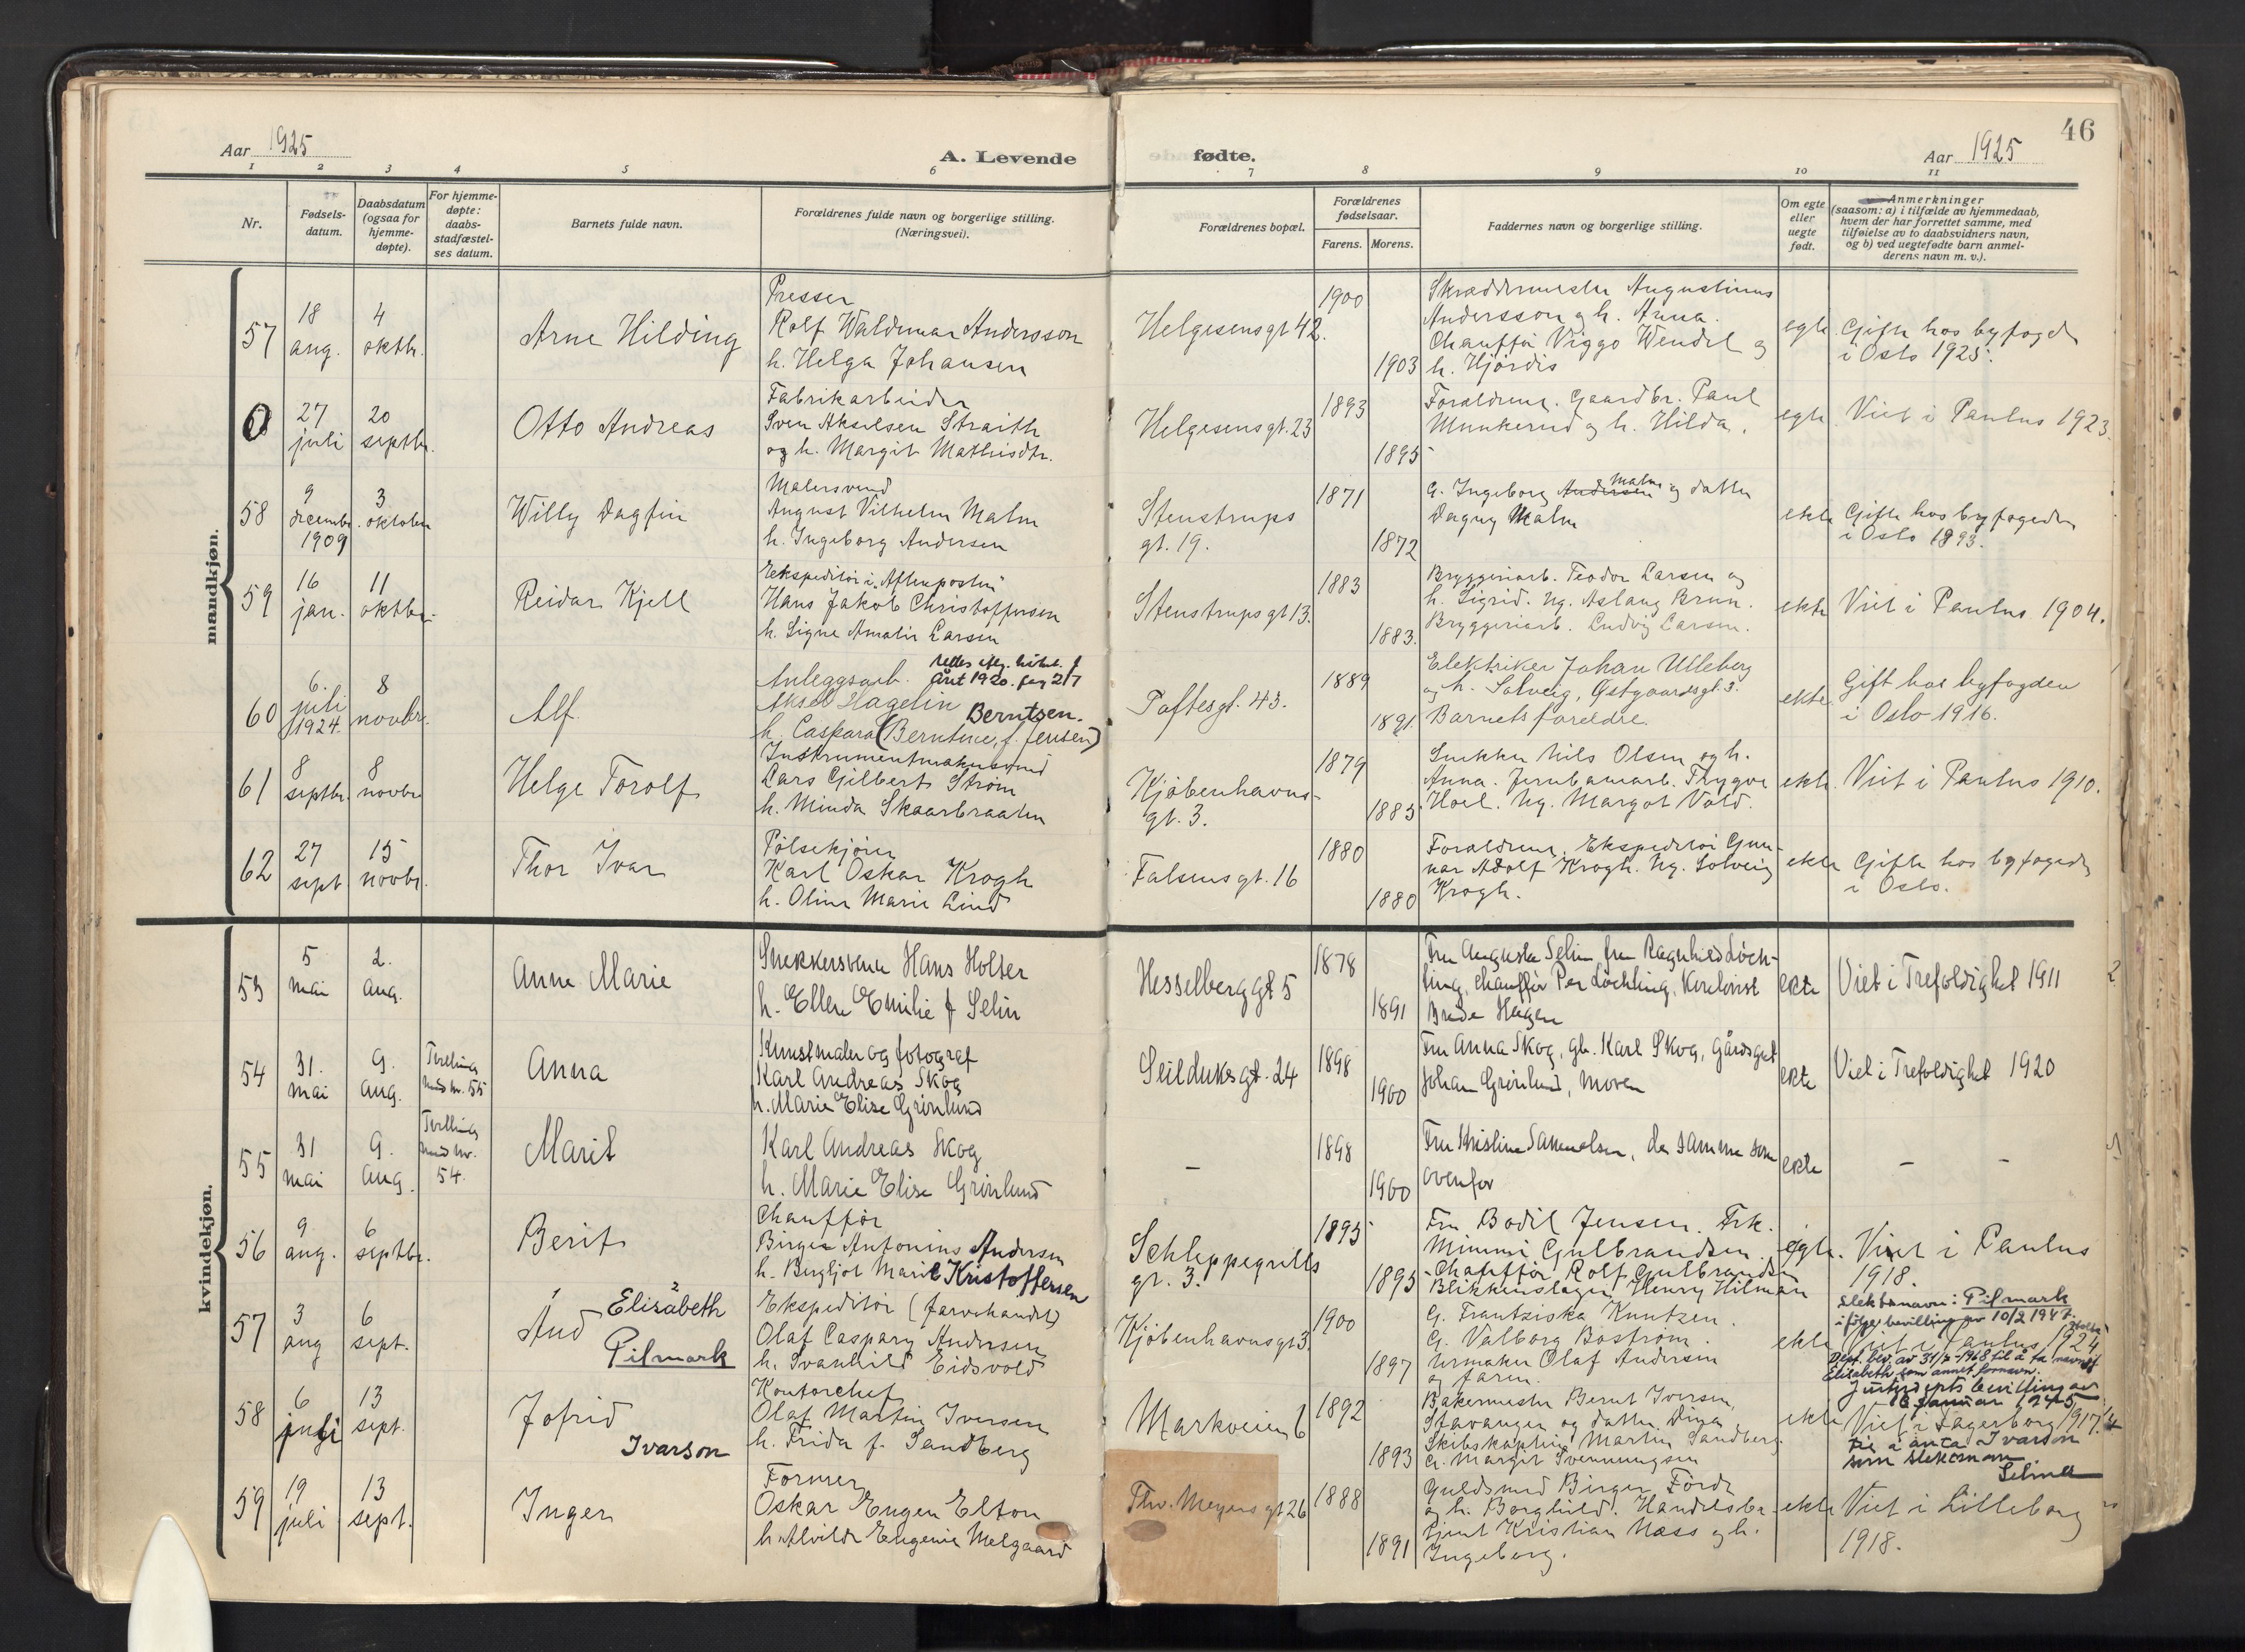 46
Aar 1925
A. Levende
fødte.
Aar 1925
1 2 3 4 5 6 7 8 9 10 11
Nr.
Fødsels-
datum.
Daabsdatum
(ogsaa for
hjemme-
døpte).
For hjemme-
døpte:
daabs-
stadfæstel-
ses datum.
Barnets fulde navn.
Forældrenes fulde navn og borgerlige stilling.
(Næringsvei).
Forældrenes bopæl.
Forældrenes
fødselsaar.
Farens. Morens.
Faddernes navn og borgerlige stilling.
Om egte
eller
uegte
født.
Anmerkninger
(saasom: a) i tilfælde av hjemmedaab,
hvem der har forrettet samme, med
tilføielse av to daabsvidners navn,
og b) ved uegtefødte barn anmel-
derens navn m. v.).
mandkjøn.
57
18
aug.
4
oktb.
Arne Hilding
Presser
Rolf Waldemar Andersson
h. Helga Johansen
Helgesensgt 42.
1900
1903
Skræddermester Augustinus
Andersson og h. Anna.
Chauffør Viggo Wendel og
h. Hjørdis
egte.
Gifte hos byfoged
i Oslo 1925.
0
27
juli
20
septbr.
Otto Andreas
Fabrikarbeider
Sven Akselsen Straith
og h. Margit Mathisdtr.
Helgesensgt. 23
1893
1895
Forældrene. Gaardbr. Paul
Munkerud og h. Hilda.
egte.
Viet i Paulus 1923.
58
9
decembr.
1909
3
oktober
Willy Dagfin
Malersvend
August Vilhelm Malm
h. Ingeborg Andersen
Stenstrups
gt. 19.
1871
1872
G. Ingeborg Andersen Malm og datter
Dagny Malm
ekte
Gifte hos byfogeden
i Oslo 1893.
59
16
jan.
11
oktbr.
Reidar Kjell
Ekspeditør i "Aftenposten"
Hans Jakob Christoffersen
h. Signe Amalie Larsen
Stenstrupsgt 13.
1883
1883.
Bryggeriarb. Teodor Larsen og
h. Sigrid. Ug. Aslaug Brun.
Bryggeriarb. Ludvig Larsen.
ekte
Viet i Paulus 1904.
60
6.
juli
1924.
8
novbr.
Alf
Anleggsarb. året 1920. pag 217
Aksel Hagelin Berntsen.
h. Caspara (Berntine, f. Jensen)
Toftesgt. 43.
1889
1891.
Elektriker Johan Ulleberg
og h. Solveig, Østgaardsgt. 3.
Barnets foreldre.
ekte.
Gift hos byfogden
i Oslo 1916.
61
8
septbr.
8
novbr
Helge Torolf
Instrumentmakersvend
Lars Gilbert Strøm
h. Minda Skaarbraaten
Kjøbenhavns-
gt. 3.
1879
1883
Snekker Nils Olsen og h.
Anna. Jernbanearb. Trygve
Hoel. Ug. Margot Vold.
ekte.
Viet i Paulus 1910.
62
27
sept
15
novbr.
Thor Ivar
Pølsekjører
Karl Oskar Krogh
h. Oline Marie Lind
Falsensgt. 16
1880
1880
Forældrene, Ekspeditør Gun-
nar Adolf Krogh. Ug. Solveig
Krogh.
ekte
Gifte hos byfogeden
i Oslo.
kvindekjøn.
53
5
mai
2.
aug.
Anne Marie
Snekkersvenn Hans Holter
h. Ellen Emilie f Selin
Hesselberggt 5
1878
1891
Fru Augusta Selin, fru Ragnhild Løch-
ting, chauffør Per Løchting,
Hagen
ekte
Viet i Trefoldighet 1911
54
31.
mai
9.
aug.
Tvilling
med nr. 55
Anna
Kunstmaler og fotograf
Karl Andreas Skog
h. Marie Elise Grønlund
Seilduksgt. 24
1898
1900
Fru Anna Skog, gb. Karl Skog, gårdsgut
Johan Grønlund, moren
ekte
Viet i Trefoldighet 1920
55
31
mai
9.
aug.
Tvilling
med nr.
54.
Marit
Karl Andreas Skog
h. Marie Elise Grønlund
–
1898
1900
Fru Kristine Samuelsen, de samme som
ovenfor
ekte
– –
56
9
aug.
6
septbr.
Berit
Chauffør
Birger Antonius Andersen
h. Bergljot Marie Kristoffersen
Schleppegrells
gt. 3.
1895
1895
Fru Bodil Jensen. Frk.
Mimmi Gulbrandsen.
Chauffør Rolf Gulbrandsen
Blikkenslager Henry Hilman
egte.
Viet i Paulus
1918.
57
3
aug
6
sept.
1 2
Aud Elisabeth
Pilmark
Ekspeditør (farvehandel)
Olaf Caspary Andersen
h. Svanhild Eidsvold
Kjøbenhavnsgt 3.
1900
1897
G. Frantziska Knutzen.
G. Valborg Bostrøm.
Urmaker Olaf Andersen
og faren.
ekte
Slektsnavn: Pilmark
ifølge bevilling av 10/2 1947.
Viet i Paulus 1924
Dept. bev. av 31/7-1968 til å ta navnet
Elisabeth som annet fornavn.
58
6
juli
13
sept.
Jofrid
Ivarson
Kontorchef
Olaf Martin Iversen
h. Frida f. Sandberg
Markveien 6
1892
1893
Bakermester Bernt Iversen,
Stavanger og datter Dina,
Skibskaptein Martin Sandberg.
G. Margit Svenningsen
ekte
Justisdepts bevilling av
16 januar 1945
Viet i Fagerborg 1917.
til å anta Ivarson
som slektsnavn
Selmer
59
19
juli
13
sept.
Inger
Former
Oskar Eugen Elton
h. Alvilde Eugenie Melgaard
Thv. Meyersgt 26
1888
1891
Guldsmed Birger Førde
og h. Borghild. Handelsbe-
tjent Kristian Næss og h.
Ingeborg.
ekte
Viet i Lilleborg
1918.